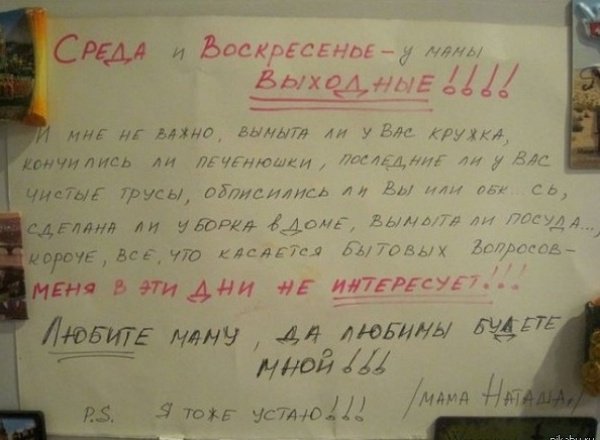 Среда и Воскресенье – у мамы
выходные!!!!
И мне не важно, вымыта ли у вас кружка,
кончились ли печенюшки, последние ли у вас
чистые трусы, описились ли вы или обк...сь,
сделана ли уборка в доме, вымыта ли посуда...,
короче, все, что касается бытовых вопросов –
меня в эти дни не интересует!!!
Любите маму, да любимы будете
мной!!!
/мама Наташа/
P.S. Я тоже устаю!!!
pikabu.ru